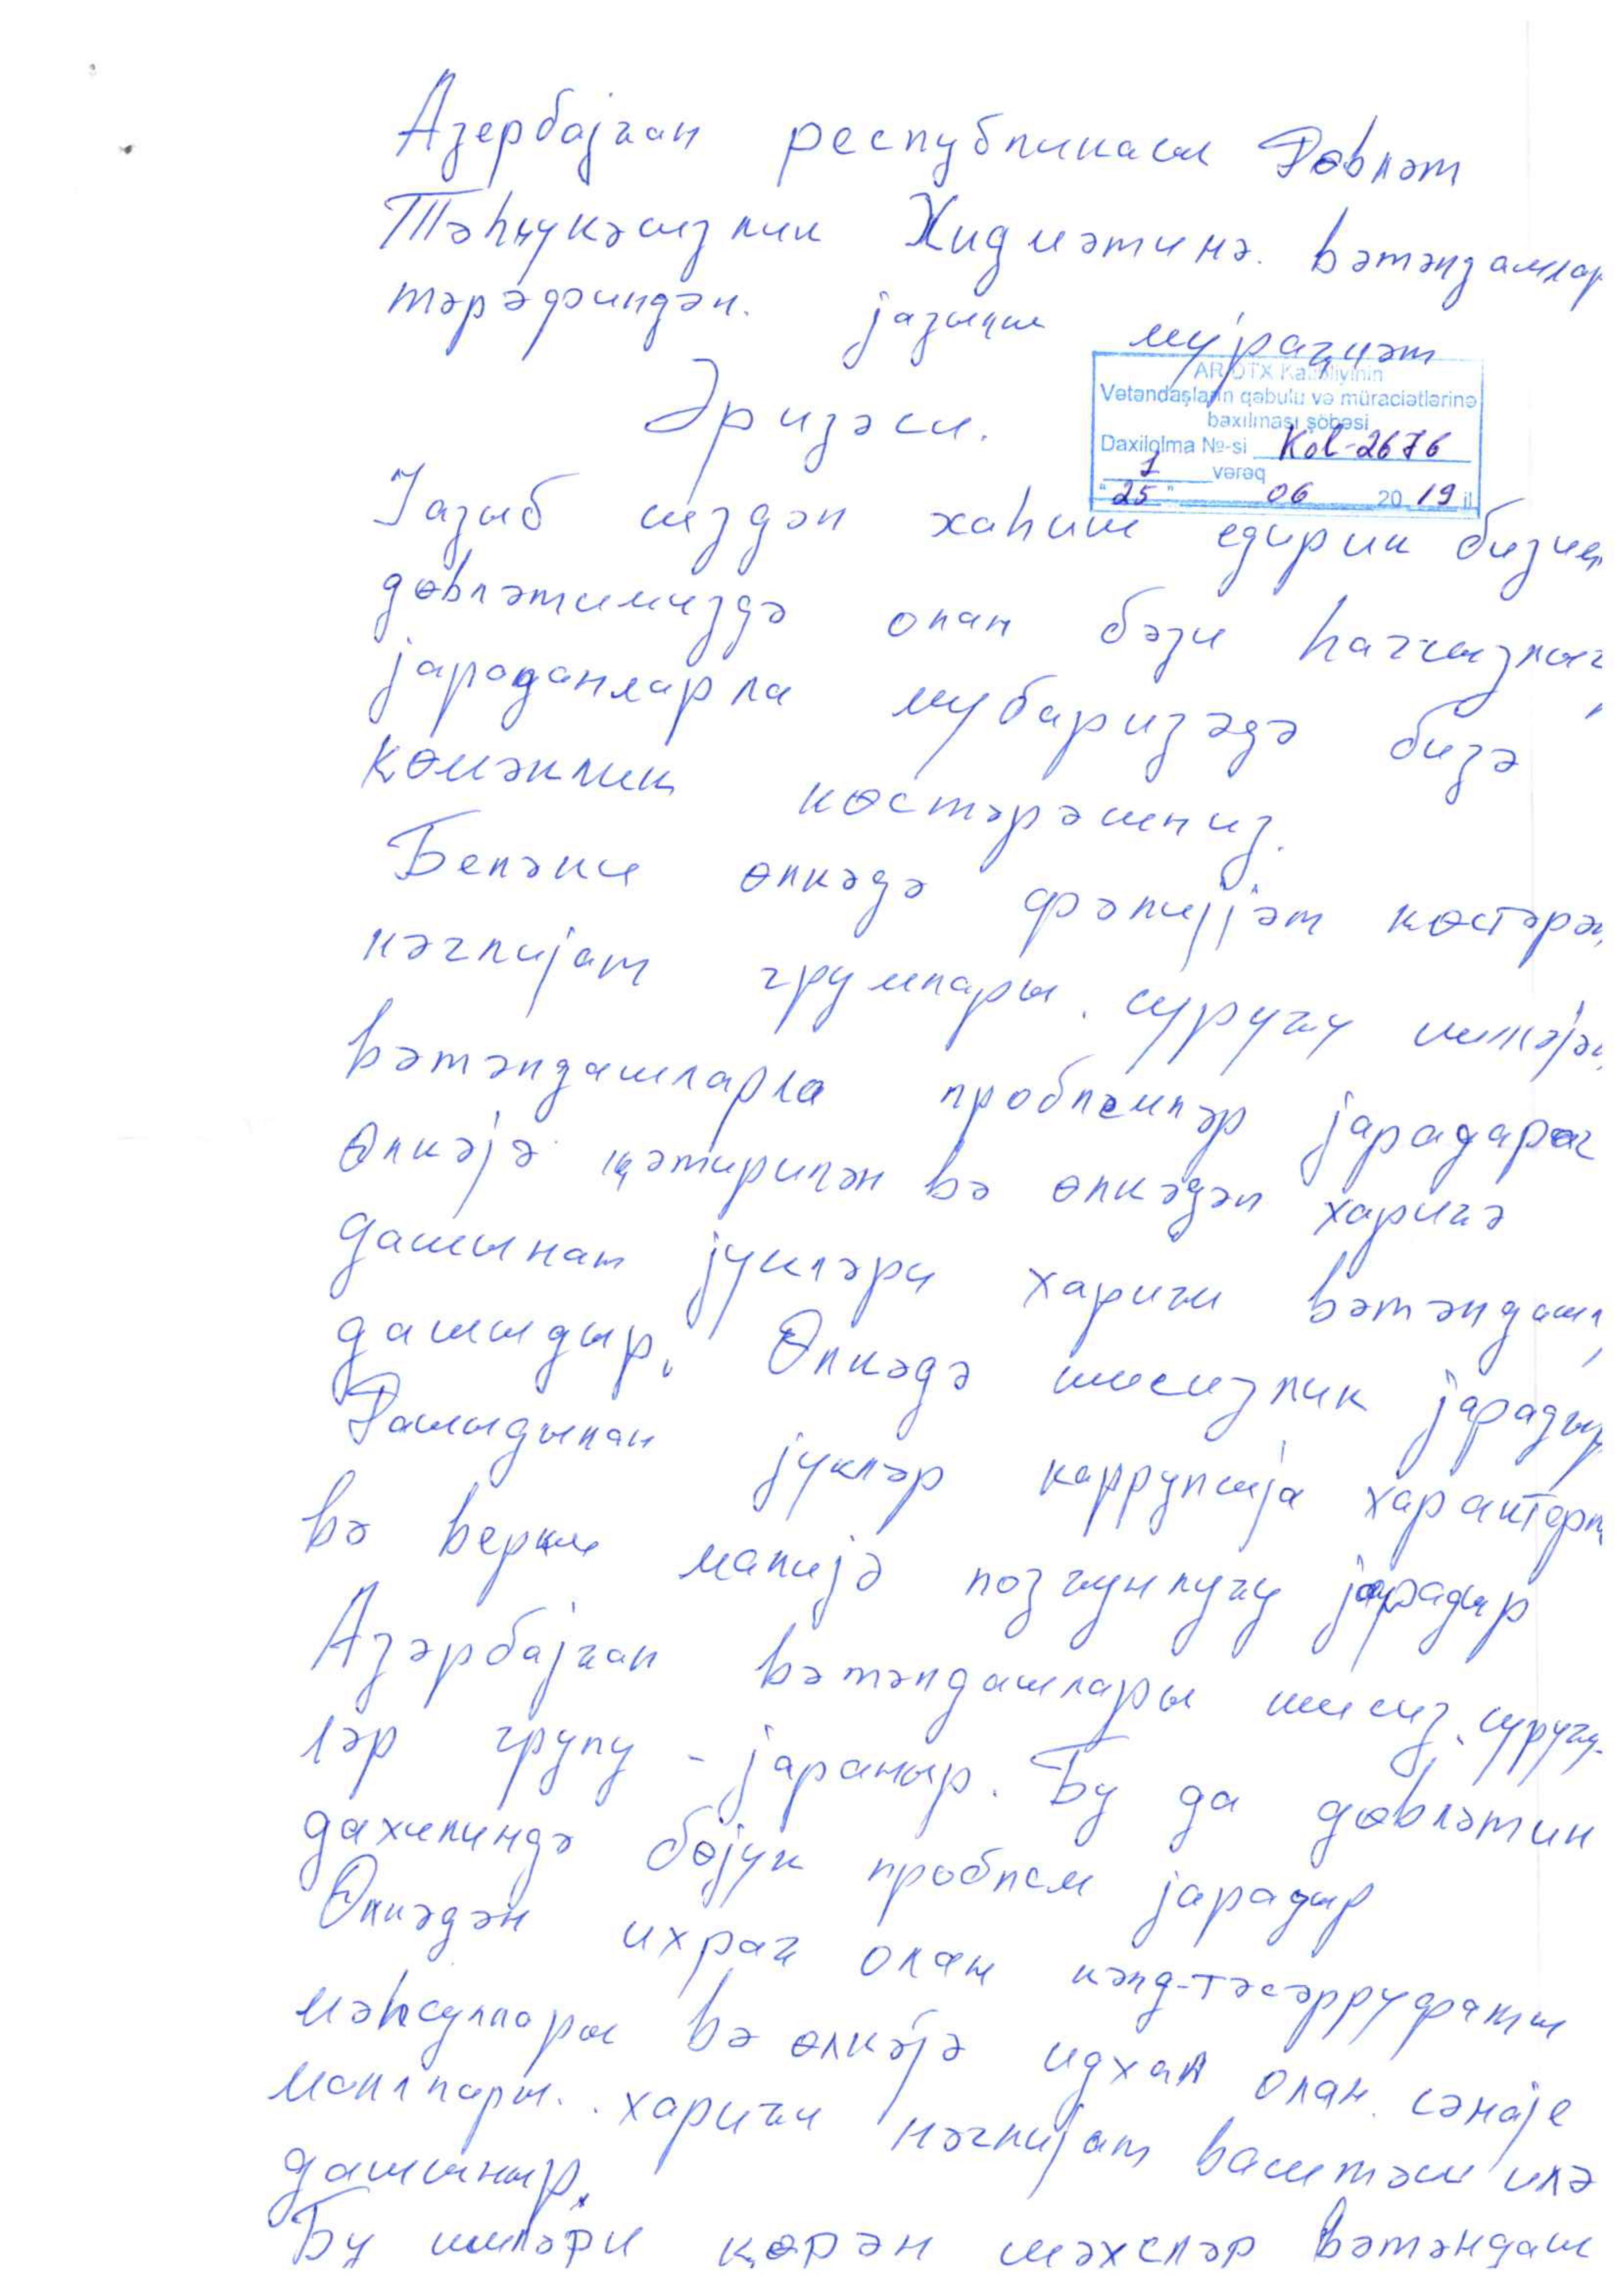 Азербајҹан республикасы Дөвләт
Тәһлүкәсизлик Хидмәтинә. вәтәндашлар
тәрәфиндән. јазылы мүраҹиәт
AR DTX
Vətəndaşların qəbulu və müraciətlərinə
baxılması şöbəsi
Әризәси.
Daxilolma №-si Kol-2676
1 vərəq
"25" 06 2019 il
Јазыб сиздән хаһиш едирик бизим
дөвләтимиздә олан бәзи һаггсызлыг
јараданларла мубаризәдә бизә
көмәклик көстәрәсиниз.
Беләки өлкәдә фәлијјәт көстәрән
нәглијат групплары. сүрүҹү ишләјән
вәтәндашларла проблемләр јарадараг
Өлкәјә ҝәтирилән вә өлкәдән хариҹә
дашынан јүкләри хариҹи вәтәндашл
дашыдыр. Өлкәдә ишсизлик јарадыр
Дашыдылан јүкләр каррупсија характерли
вә верҝи малијә позғунлуғу јарадыр
Азәрбајҹан вәтәндашлары ишсиз. сүрүҹү-
ләр групу - јараныр. Бу да дөвләтин
дахилиндә бөјүк проблем јарадыр
Өлкәдән ихраҹ олан кәнд-тәсәрруфаты
мәһсуллары вә өлкәјә идхал олан. сәнаје
маллары.. хариҹи нәглијат васитәси илә
дашыныр.
Бу ишләри ҝөрән шәхсләр вәтәндаш